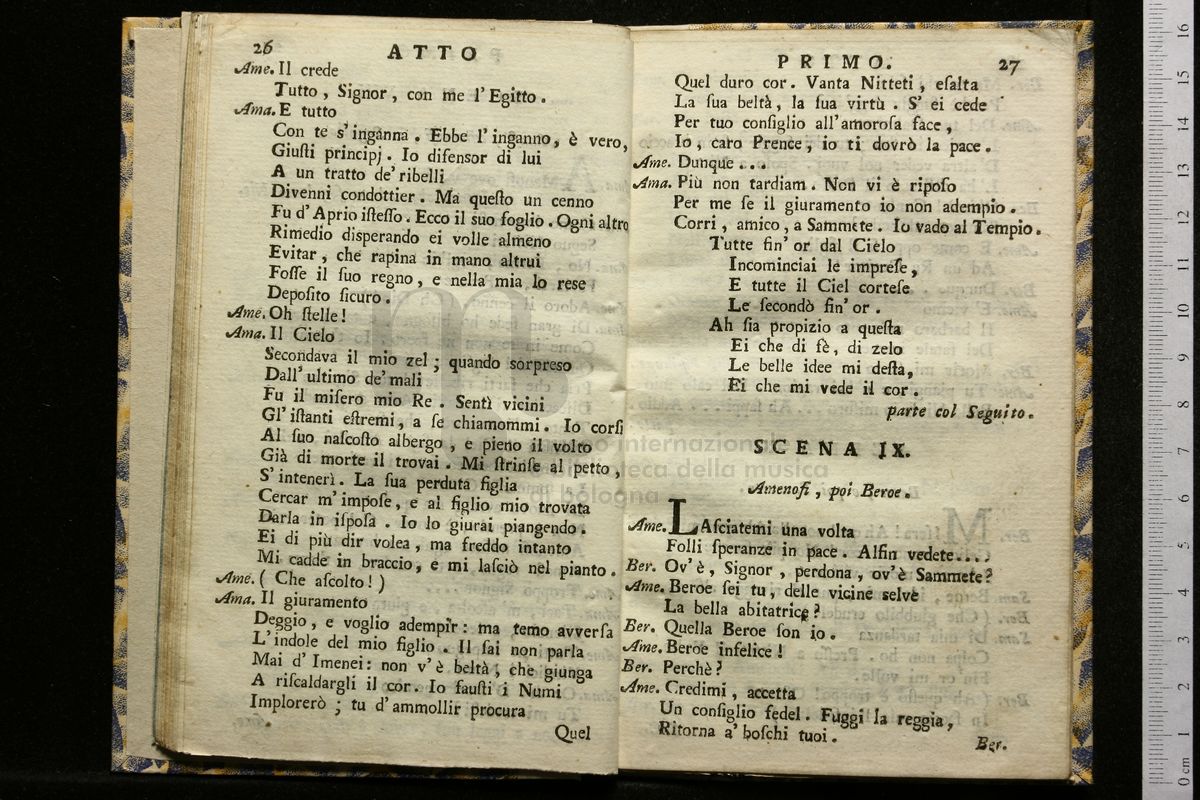 26 ATTO
Ame. Il crede
Tutto, Signor, con me l'Egitto.
Ama. E tutto
Con te s'ingánna. Ebbe l'inganno, è vero,
Giuſti principj. Io difensor di lui
A un tratto de'ribelli
Divenni condottier. Ma queſto un cenno
Fu d'Aprio iſteſſo. Ecco il suo foglio. Ogni altro
Rimedio disperando ei volle almeno
Evitar, che rapina in mano altrui
Foſſe il ſuo regno, e nella mia lo rese
Depoſito ſicuro.
Ame. Oh ſtelle!
Ama. Il Cielo
Secondava il mio zel; quando sorpreso
Dall'ultimo de'mali
Fu il miſero mio Re. Sentì vicini
Gl'iſtanti eſtremi, a ſe chiamommi. Io corſi
Al ſuo naſcoſto albergo, e pieno il volto
Già di morte il trovai. Mi ſtrinſe al petto,
S'intenerì. La ſua perduta figlia
Cercar m'impoſe, e al figlio mio trovata
Darla in iſpoſa. Io lo giurai piangendo.
Ei di più dir volea, ma freddo intanto
Mi cadde in braccio, e mi laſciò nel pianto.
Ame. ( Che aſcolto! )
Ama. Il giuramento
Deggio, e voglio adempir: ma temo avverſa
L'indole del mio figlio. Il ſai non parla
Mai d'Imenei: non v'è beltà, che giunga
A riſcaldargli il cor. Io fauſti i Numi
Implorerò; tu d'ammollir procura
Quel
PRIMO. 27
Quel duro cor. Vanta Nitteti, eſalta
La ſua beltà, la ſua virtù. S'ei cede
Per tuo conſiglio all'amoroſa face,
Io, caro Prence, io ti dovrò la pace.
Ame. Dunque...
Ama. Più non tardiam. Non vi è ripoſo
Per me ſe il giuramento io non adempio.
Corri, amico, a Sammete. Io vado al Tempio.
Tutte fin' or dal Cielo
Incominciai le impreſe,
E tutte il Ciel corteſe
Le ſecondò fin' or.
Ah ſia propizio a queſta
Ei che di fè, di zelo
Le belle idee mi deſta,
Ei che mi vede il cor.
parte col Seguito.
SCENA IX.
Amenofi, poi Beroe.
Ame. LAſciatemi una volta
Folli ſperanze in pace. Alfin vedete....
Ber. Ov'è, Signor, perdona, ov'è Sammete?
Ame. Beroe ſei tu, delle vicine selve
La bella abitatrice?
Ber. Quella Beroe ſon io.
Ame. Beroe infelice!
Ber. Perchè?
Ame. Credimi, accetta
Un conſiglio fedel. Fuggi la reggia,
Ritorna a' boſchi tuoi.
Ber.
museo internazionale
e biblioteca della musica
di bologna